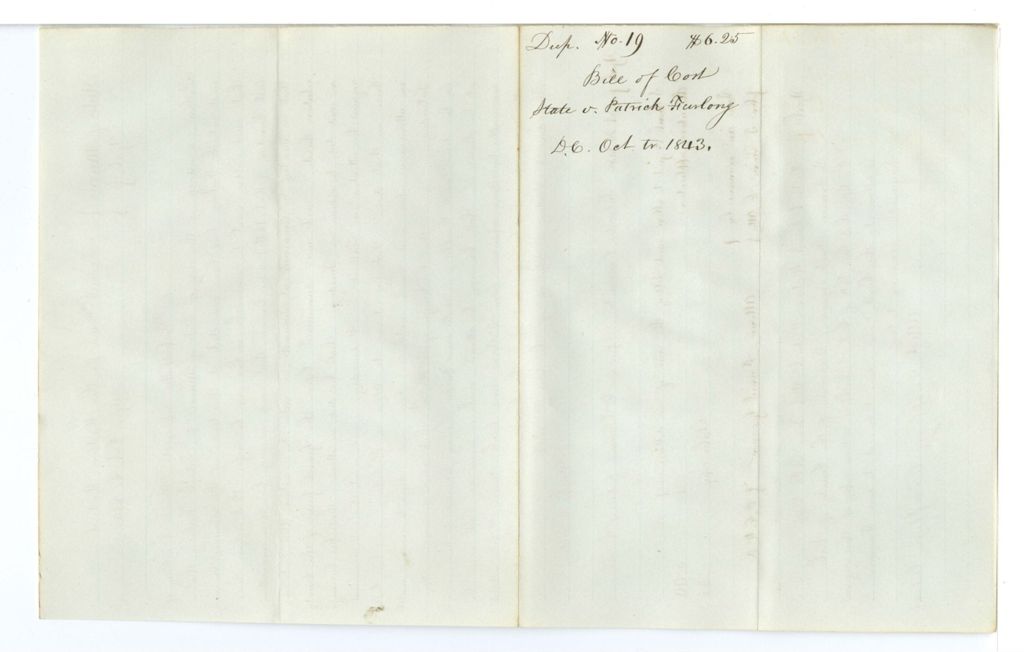 Dup. No. 19 $6.25
Bill of Cost
State v. Patrick Furlong
D.C. Oct. tr. 1843.